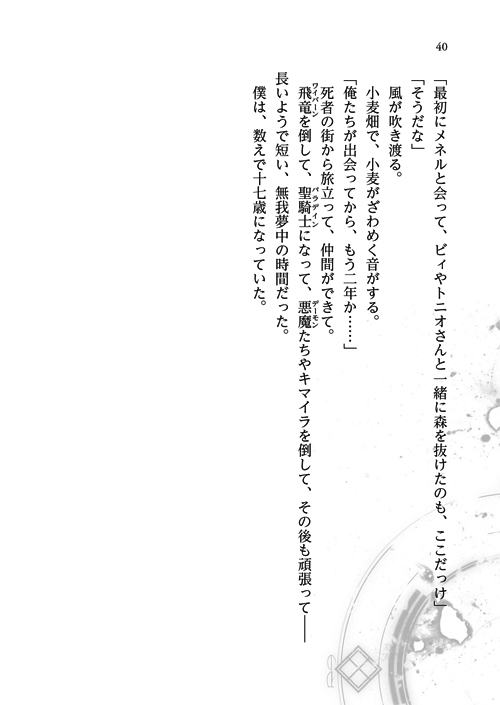 40
「最初にメネルと会って、ビィやトニオさんと一緒に森を抜けたのも、ここだっけ」
「そうだな」
風が吹き渡る。
小麦畑で、小麦がざわめく音がする。
「俺たちが出会ってから、もう二年か……」
死者の街から旅立って、仲間ができて。
飛竜を倒して、聖騎士になって、悪魔たちやキマイラを倒して、その後も頑張って――
ワイバーン
パラディン
デーモン
長いようで短い、無我夢中の時間だった。
僕は、数えで十七歳になっていた。